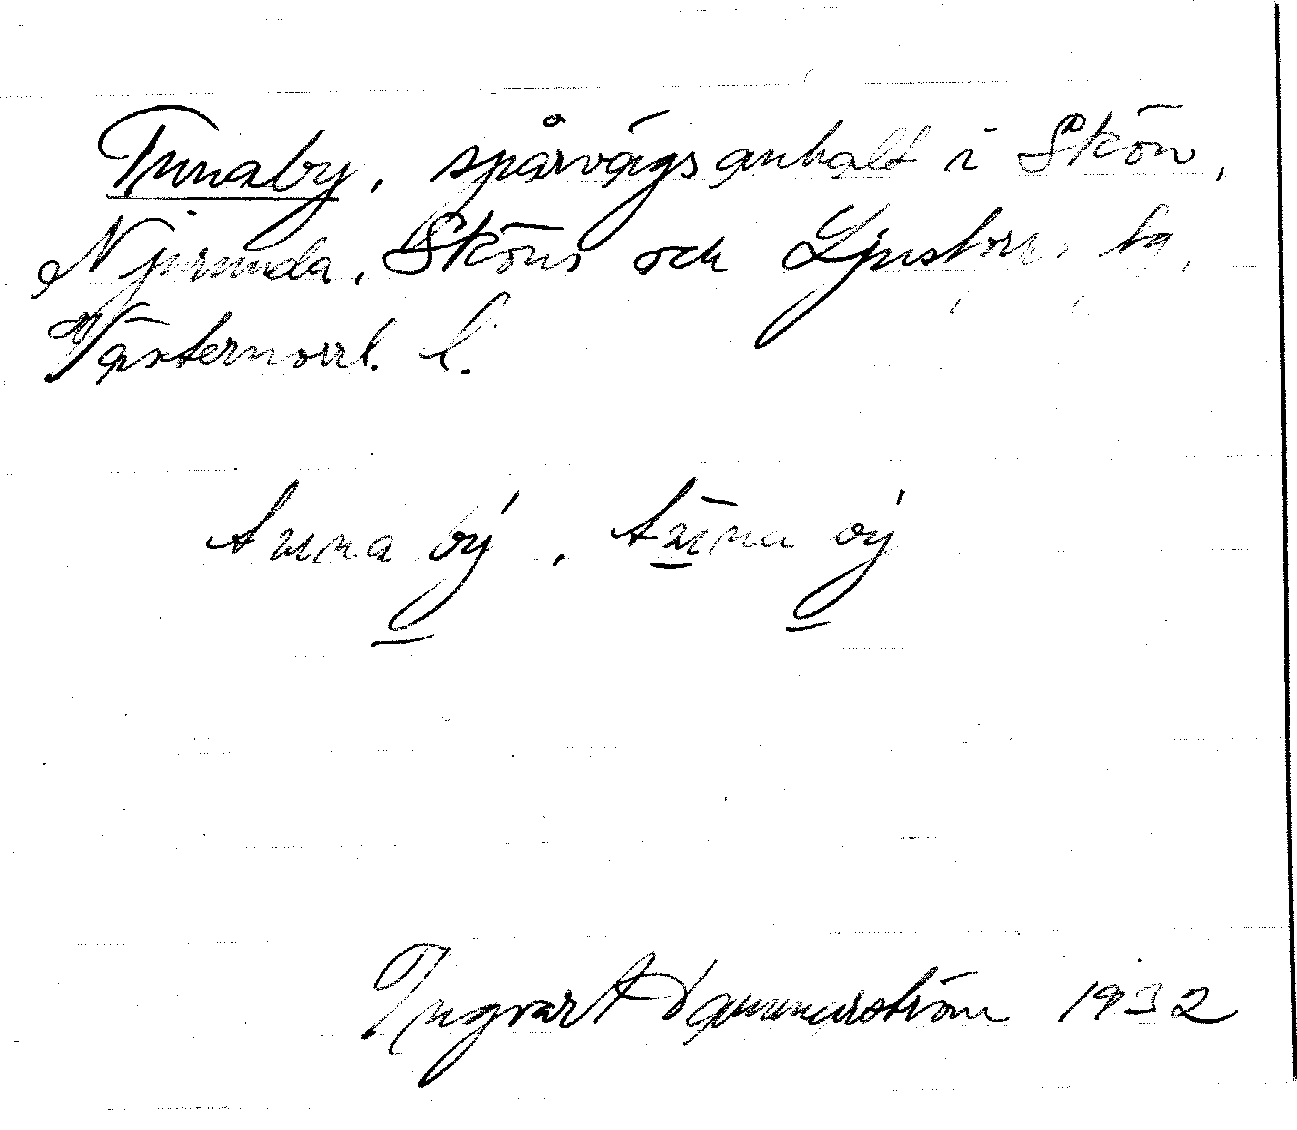 Tunaby, spårvägsanhalt i Skön,
Njurunda, Sköns och Ljustor. tg,
Västernorrl. l.
tuna bý, tūna bý
Ingvar Hammarström 1932